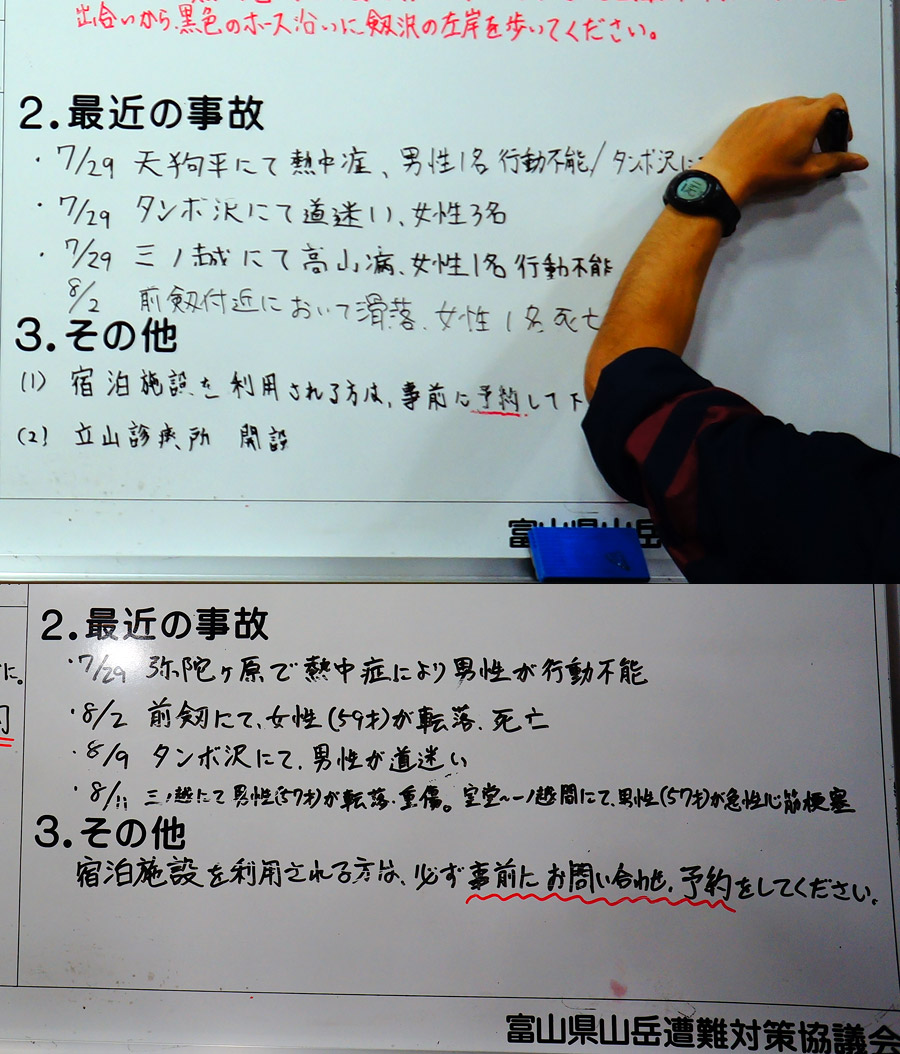 出合いから黒色のホース沿いに剱沢の左岸を歩いてください。
2.最近の事故
・7/29 天狗平にて熱中症、男性1名行動不能/タンボ沢に
・7/29 タンボ沢にて道迷い、女性3名
・7/29 三ノ越にて高山病、女性1名行動不能
8/2 前剱付近において滑落、女性1名死亡
3.その他
(1) 宿泊施設を利用される方は、事前に予約して下
(2) 立山診療所 開設
富山県山岳
2.最近の事故
・7/29 弥陀ヶ原で熱中症により男性が行動不能
・8/2 前剱にて、女性(59才)が転落、死亡
・8/9 タンボ沢にて、男性が道迷い
・8/11 三ノ越にて男性(57才)が転落・重傷。室堂〜一ノ越間にて、男性(57才)が急性心筋梗塞
3.その他
宿泊施設を利用される方は、必ず事前にお問い合わせ、予約をしてください。
富山県山岳遭難対策協議会